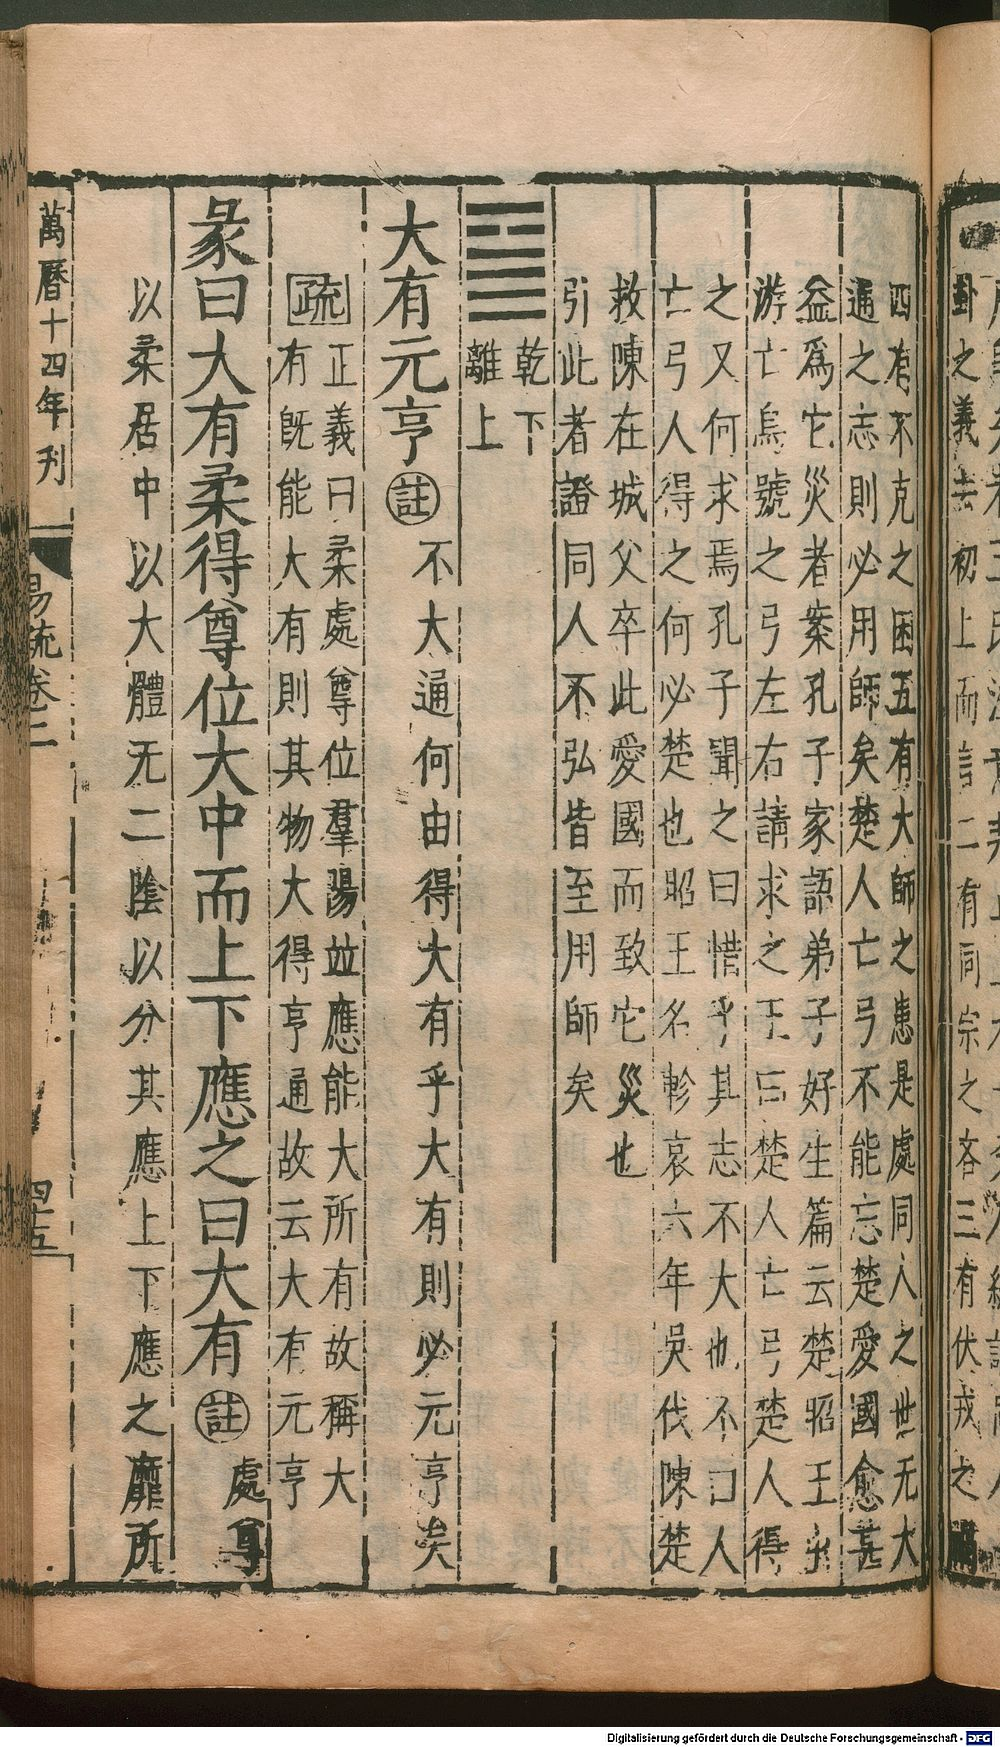 卦之義去初上而言二有同宗之吝三有伏戎之禍
四有不克之困五有大師之患是處同人之世无大
通之志則必用師矣楚人亡弓不能忘楚愛國愈甚
益爲它災者案孔子家語弟子好生篇云楚昭王出
游亡烏號之弓左右請求之王曰楚人亡弓楚人得
之又何求焉孔子聞之曰惜乎其志不大也不曰人
亡弓人得之何必楚也昭王名軫哀六年吳伐陳楚
救陳在城父卒此愛國而致它災也
引此者證同人不弘皆至用師矣
乾下
離上
大有元亨註不大通何由得大有乎大有則必元亨矣
疏正義曰柔處尊位羣陽並應能大所有故稱大
有既能大有則其物大得亨通故云大有元亨
彖曰大有柔得尊位大中而上下應之曰大有註處尊
以柔居中以大體无二陰以分其應上下應之靡所
萬曆十四年刊
易疏卷二
四十五
Digitalisierung gefördert durch die Deutsche Forschungsgemeinschaft - DFG